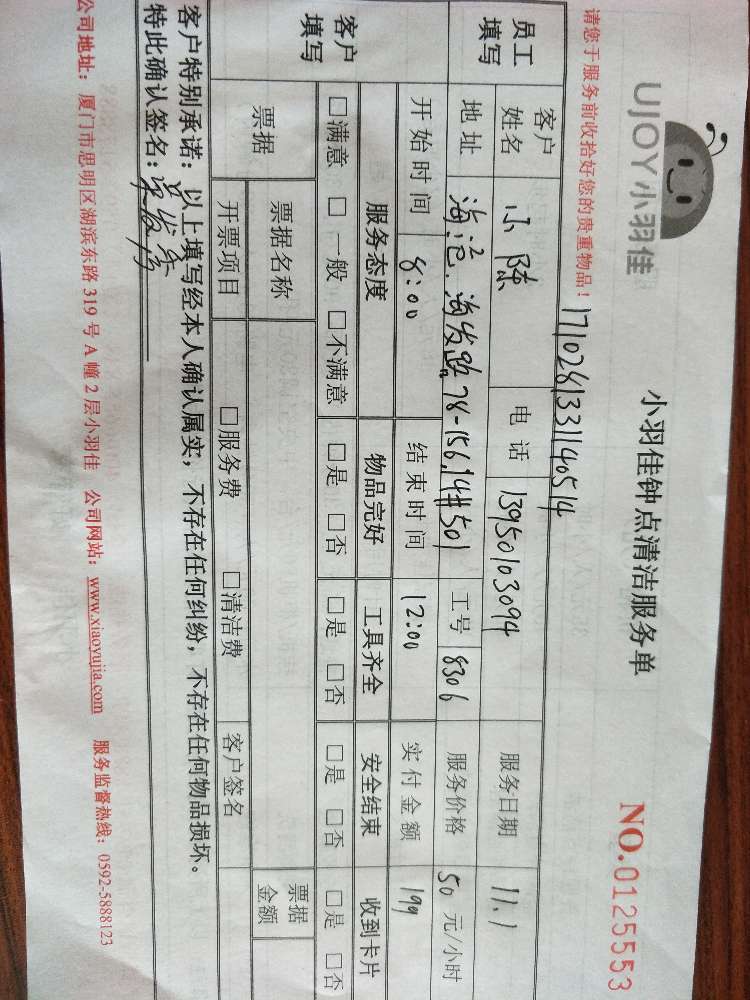 UJOY小羽佳
小羽佳钟点清洁服务单
NO.0125553
请您于服务前收拾好您的贵重物品！
1710281331140514
员工填写
客户姓名 小陈 电话 13950103094 服务日期 11.1
地址 海沧2海发路78-156,14#501 工号 8306 服务价格 50 元/小时
开始时间 8:00 结束时间 12:00 实付金额 199
客户填写
服务态度 物品完好 工具齐全 安全结束 收到卡片
□满意 □一般 □不满意 □是 □否 □是 □否 □是 □否 □是 □否
票据 票据名称 票据金额
开票项目 □服务费 □清洁费 客户签名
客户特别承诺：以上填写经本人确认属实，不存在任何纠纷，不存在任何物品损坏。
特此确认签名：
公司地址：厦门市思明区湖滨东路 319 号 A 幢 2 层小羽佳 公司网站：www.xiaoyujia.com 服务监督热线：0592-5888123